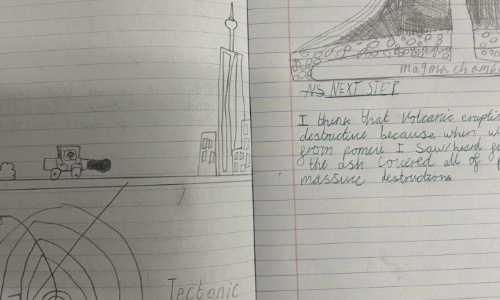 Tectonic
magma chamb
NS NEXT STEP
I think that Volcanic erupti
destructive because when w
from pomeii I saw/heard
the ash Covered all of
massive destruction